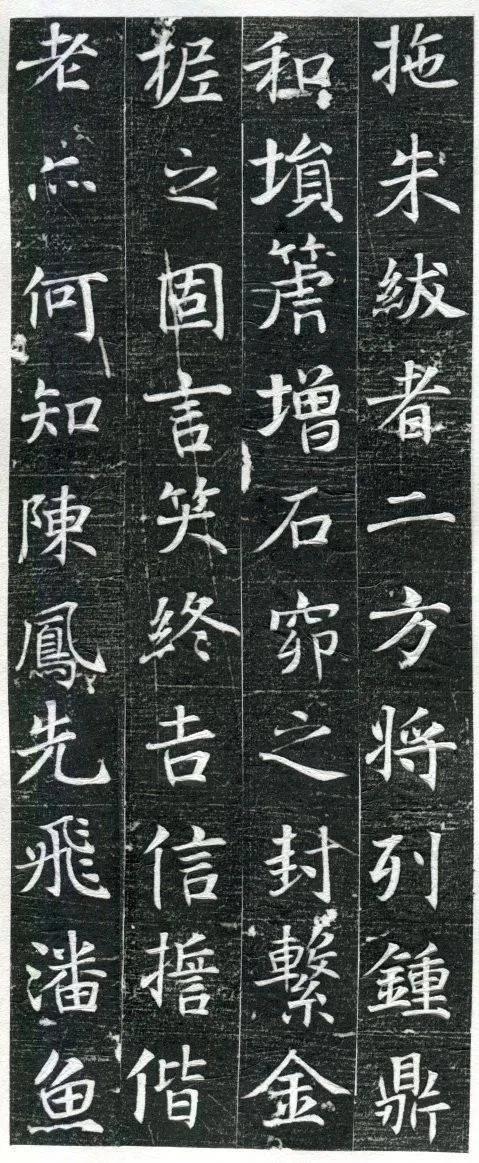 拖朱紱者二方将列鍾鼎
和塤箎增石窌之封繋金
柅之固言笑終吉信擔偕
老亦何知陳鳳先飛潘魚